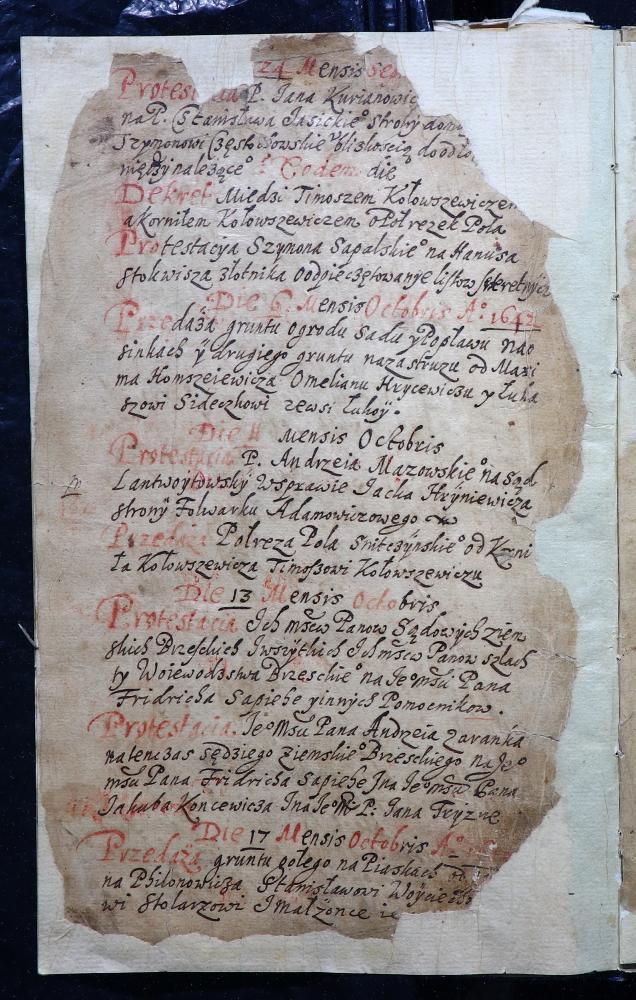 24 Mensis
P. Jana Kurianowic
na P. Stanisława Jasickieo strony
Szymonowi Częstobowskieo bliskością do odło
między należąceo Eodem die
Dekret Miedzi Timoszem Kołowszewiczem
a Korniłem Kołowszewiczem o Połrezek Pola
Protestacya Szymona Sapalskieo na Hanusa
Stokwisza złotnika o odpieczętowanye listow sekretnych
Die 6 Mensis Octobris Ao 1647
Przedaża gruntu ogrodu Sadu y Popławu nao
sinkach ÿ drugiego gruntu nazastruzu od Maxi
ma Homszeiewicza Omelianu Hrycewiczu y Łuka
szowi Sideczkowi zewsi Łuhoÿ.
Die 11 Mensis Octobris
Protestacia P. Andrzeia Mazowskieo na sąd
Lantwoytowskÿ Wsprawie Jacka Hryniewicza
strony Folwarku Adamowiczowego
Przedaża Połreza Pola Snitczÿnskieo od Korni
ła Kołowszewicza Timoszowi Kołowszewiczu
Die 13 Mensis Octobris
Protestacia Ich mściw Panow Sądowych ziem
skich Brzeskich Jwszÿtkich Ich mściw Panow szlach
ty Woiewodztwa Brzeskieo na Jeo mśći Pana
Fridricha Sapiehe yinnych Pomocnikow.
Protestacia. Jeo Mści Pana Andrzeia Zaranka
natenczas sędziego ziemskieo Brzeskiego na Jeo
mśći Pana Fridricha Sapiehe Jna Jeo mśći Pana
Jakuba Koncewicza Jna Jeo Mći P: Jana Fryzne
Die 17 Mensis Octobris Ao
Przedaża gruntu gołego na Piaskach od
na Philonowicza Stanisławowi Woÿcie
wi Stolarzowi J małżonce ie